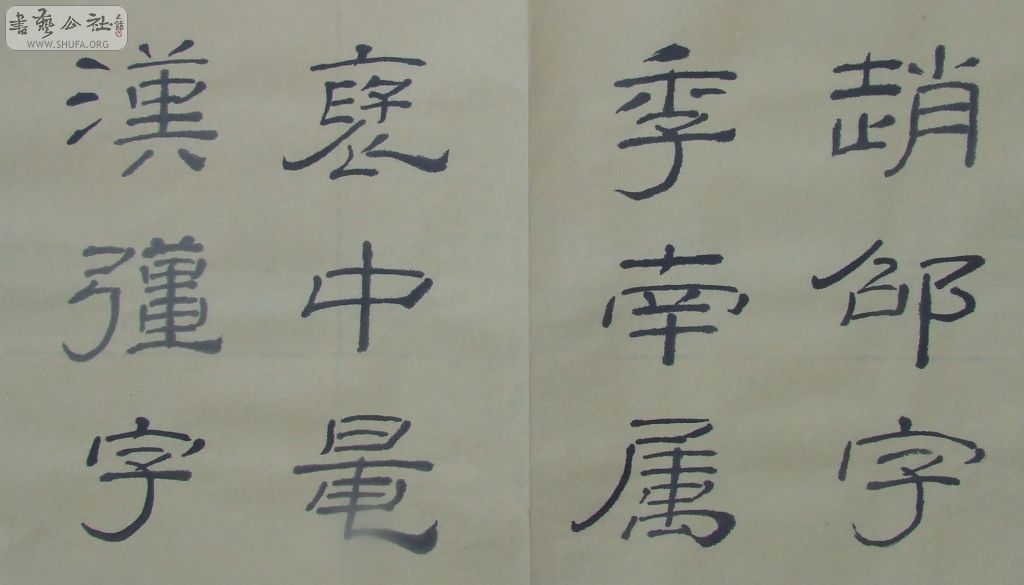 書藝公社
WWW.SHUFA.ORG
趙邵字
季南属
褒中鼂
漢彊字